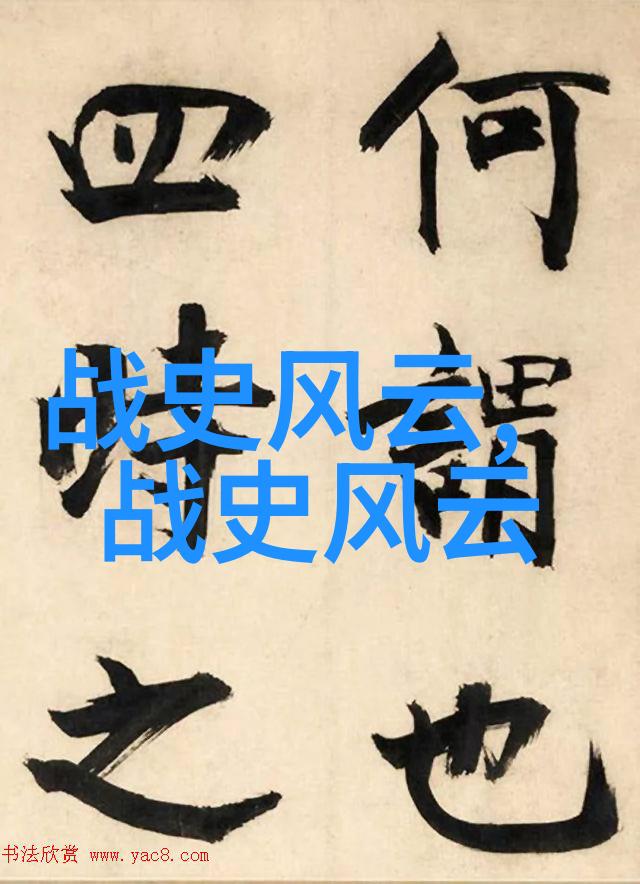 何謂也
四時之
战史风云,
战史风云
书法欣赏 www.yac8.com